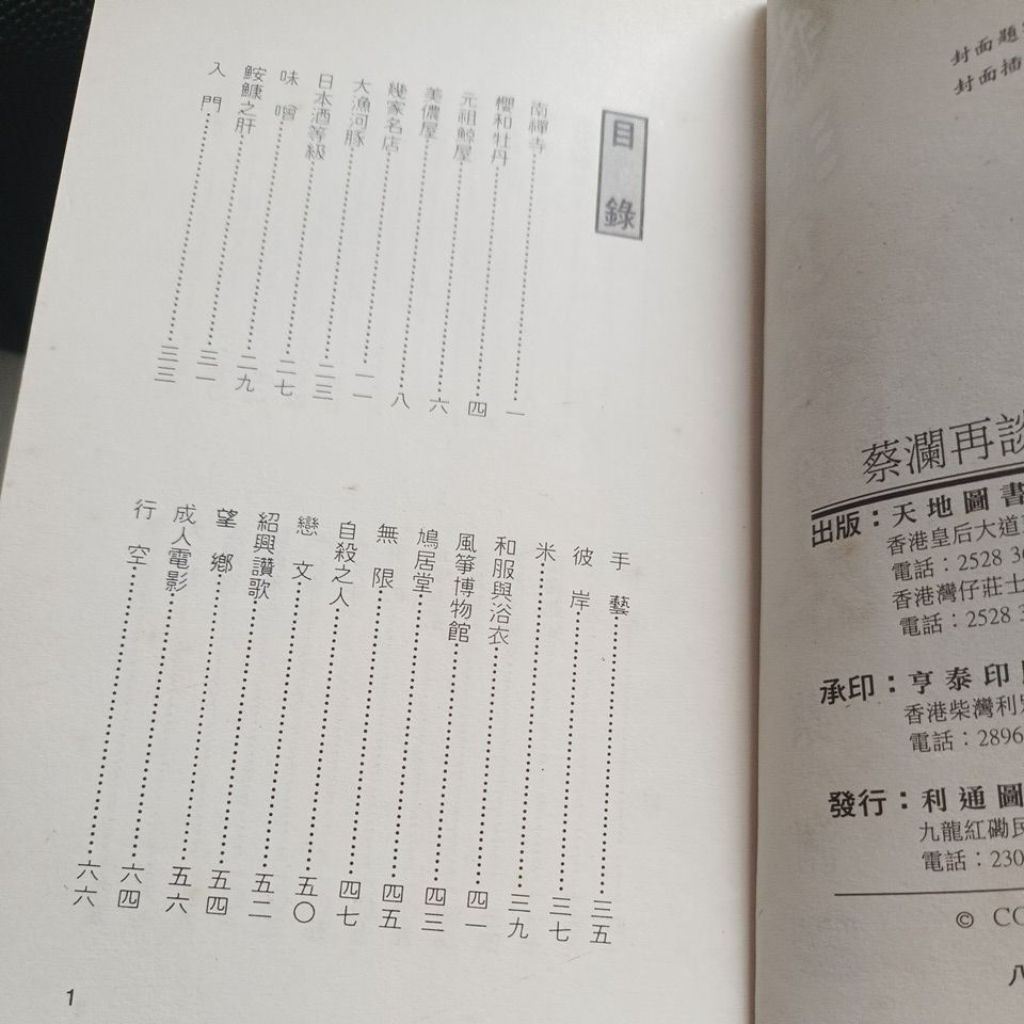 目錄
南禪寺⋯⋯一
櫻和牡丹⋯⋯四
元祖鯨屋⋯⋯六
美儂屋⋯⋯八
幾家名店⋯⋯一一
大漁河豚⋯⋯二三
日本酒等級⋯⋯二七
味噌⋯⋯二九
鮟鱇之肝⋯⋯三一
入門⋯⋯三三
手藝⋯⋯三五
彼岸⋯⋯三七
米⋯⋯三九
和服與浴衣⋯⋯四一
風箏博物館⋯⋯四三
鳩居堂⋯⋯四五
無限⋯⋯四七
自殺之人⋯⋯五〇
戀文⋯⋯五二
紹興讚歌⋯⋯五四
望鄉⋯⋯五六
成人電影⋯⋯六四
行空⋯⋯六六
1
封面題
封面插
蔡瀾再談
出版：天地圖書
香港皇后大道
電話：2528 3
香港灣仔莊士
電話：2528 3
承印：亨泰印
香港柴灣利
電話：2896
發行：利通圖
九龍紅磡民
電話：230
© CO
八